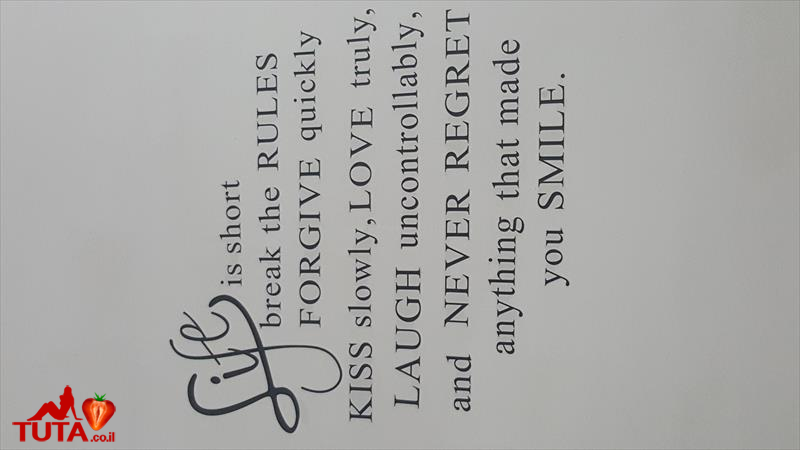 Life
is short
break the RULES
FORGIVE quickly
KISS slowly, LOVE truly,
LAUGH uncontrollably,
and NEVER REGRET
anything that made
you SMILE.
TUTA.co.il